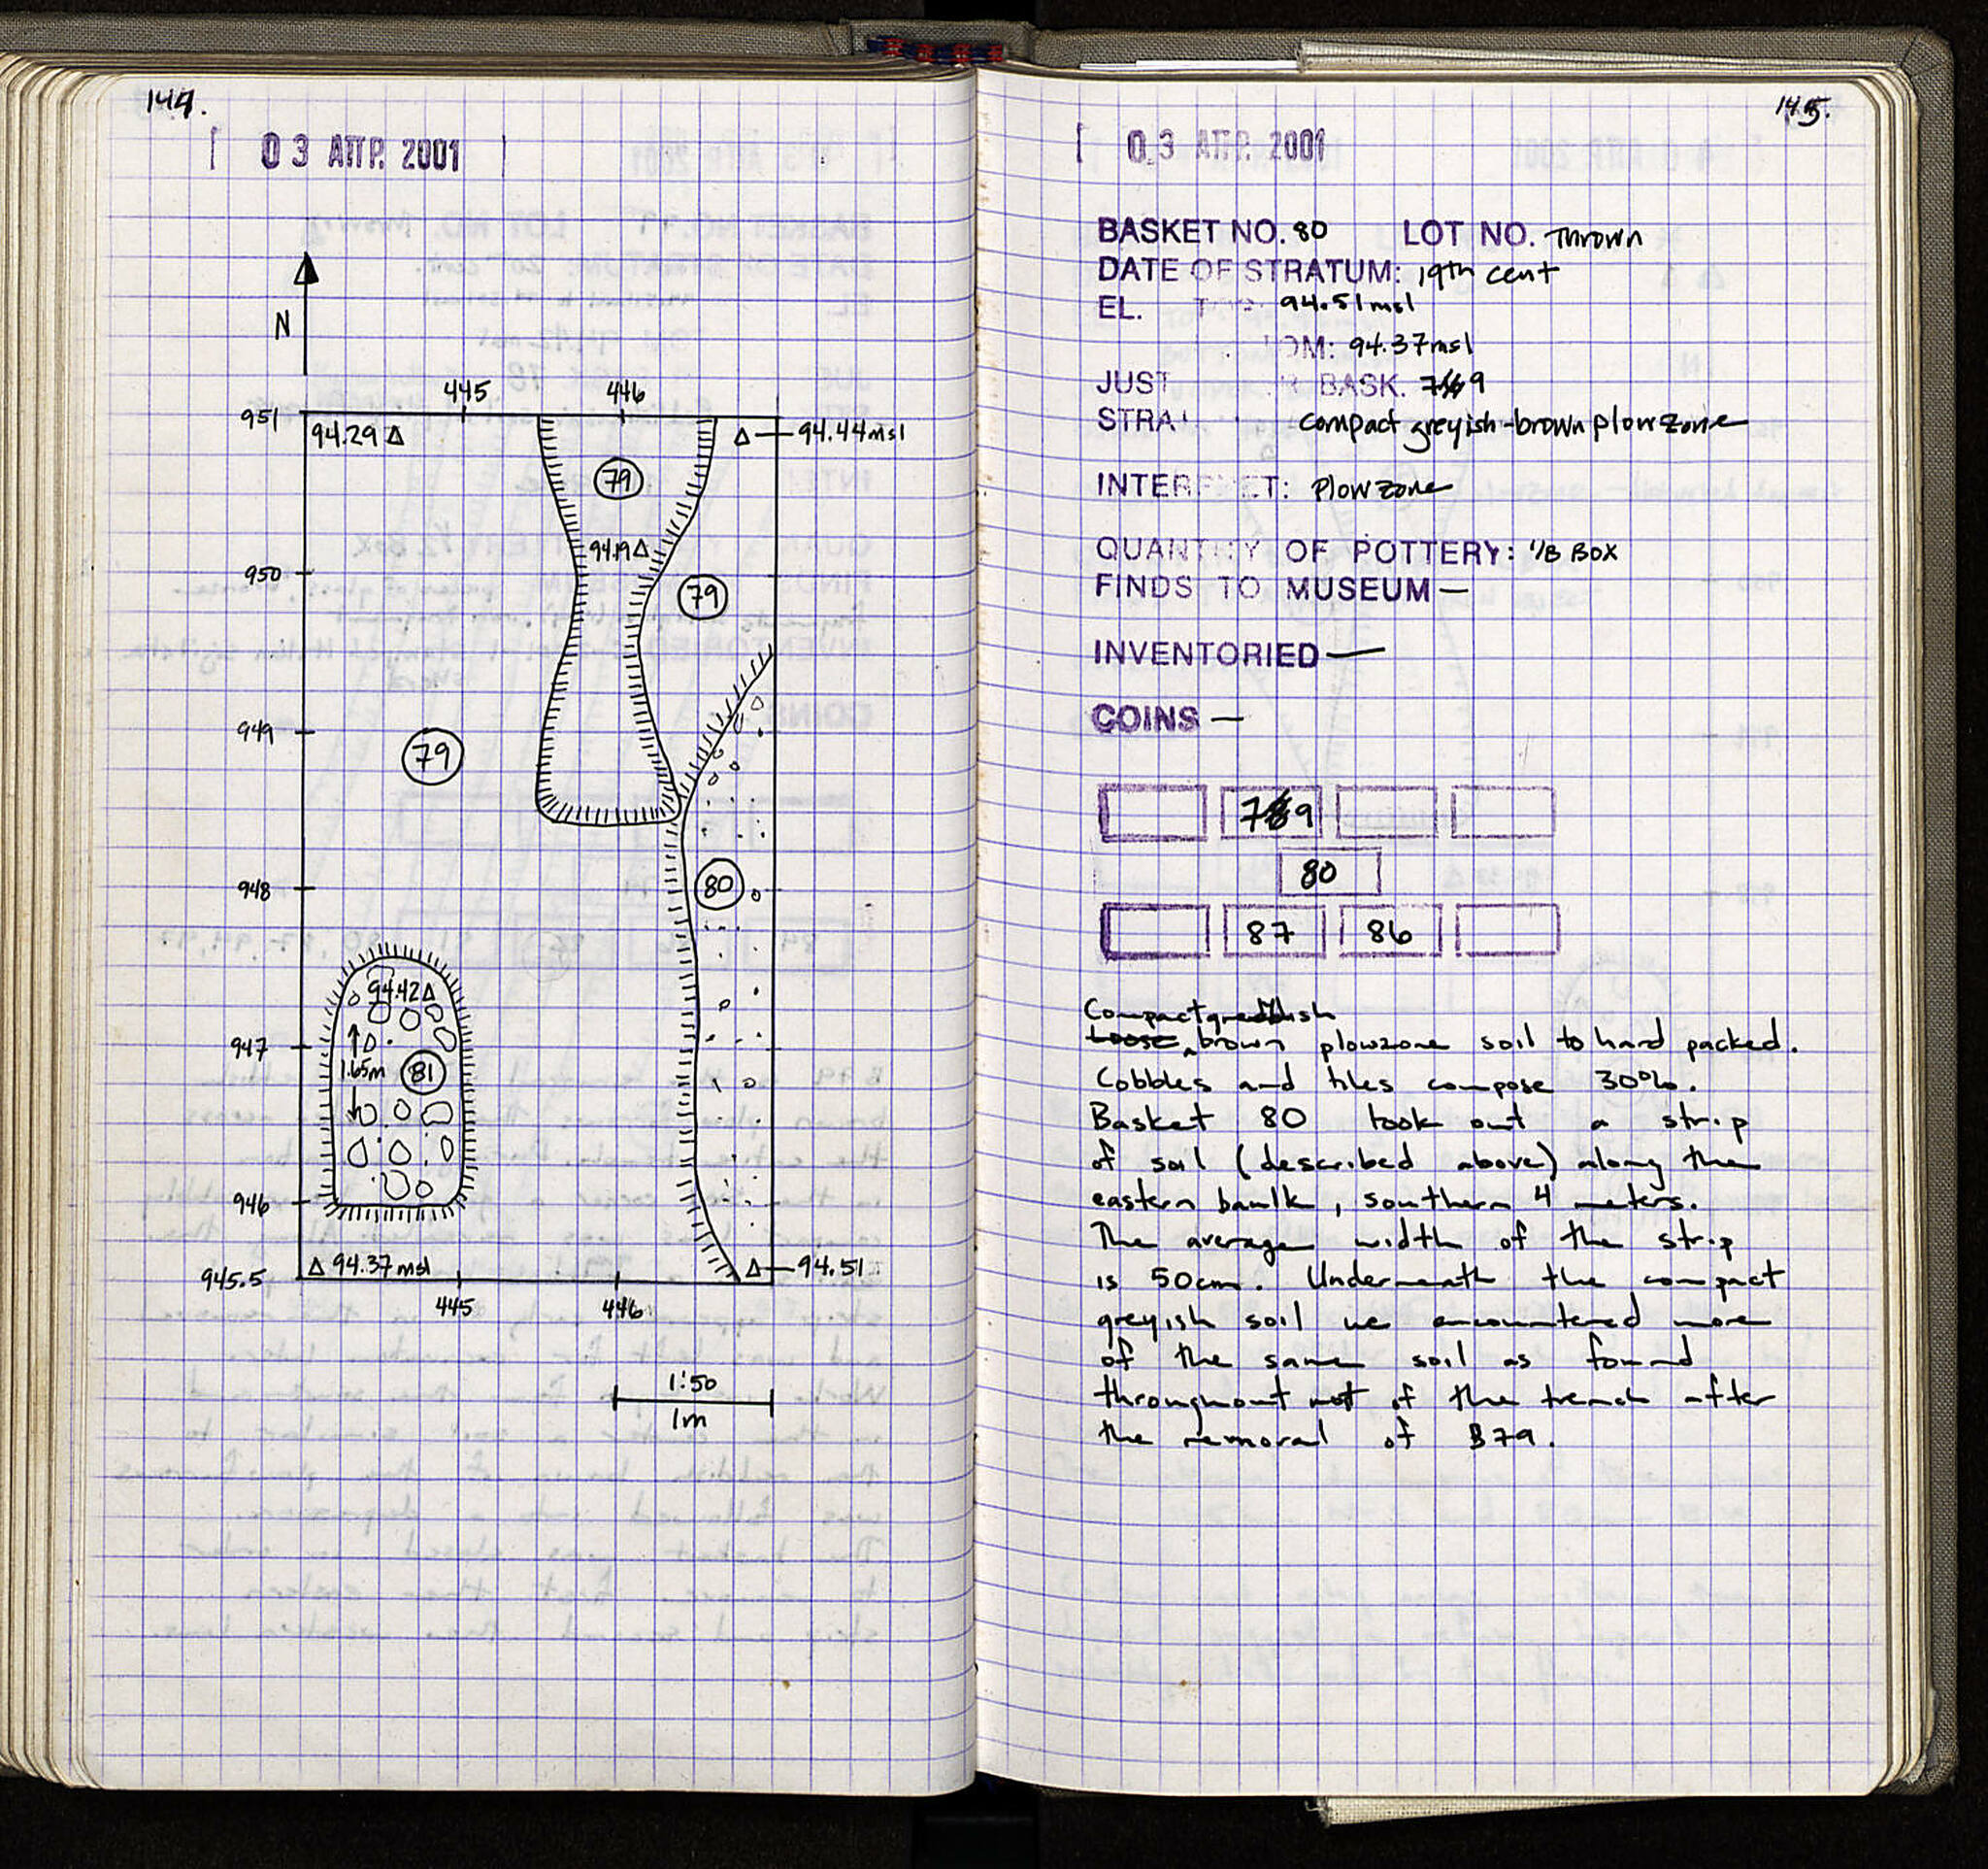 144.
03 ΑΠΡ. 2001
N
445 446
951
94.29 Δ
Δ — 94.44 msl
79
94.19 Δ
950
79
949
79
948
80
94.42 Δ
947
1.65m
81
946
945.5
Δ 94.37 msl
Δ — 94.51
445 446
1:50
1m
145.
03 ΑΠΡ. 2001
BASKET NO. 80 LOT NO. Thrown
DATE OF STRATUM: 19th cent
EL. 94.51 msl
OM: 94.37 msl
JUST BASK. 79
STRA compact greyish-brown plowzone
INTERPRET: Plowzone
QUANTITY OF POTTERY: 1/8 BOX
FINDS TO MUSEUM —
INVENTORIED —
COINS —
79
80
87 86
Compact
Loose brown plowzone soil to hard packed.
Cobbles and tiles compose 30%.
Basket 80 took out a strip
of soil (described above) along the
eastern baulk, southern 4 meters.
The average width of the strip
is 50cm. Underneath the compact
greyish soil we encountered more
of the same soil as found
throughout of the trench after
the removal of B79.